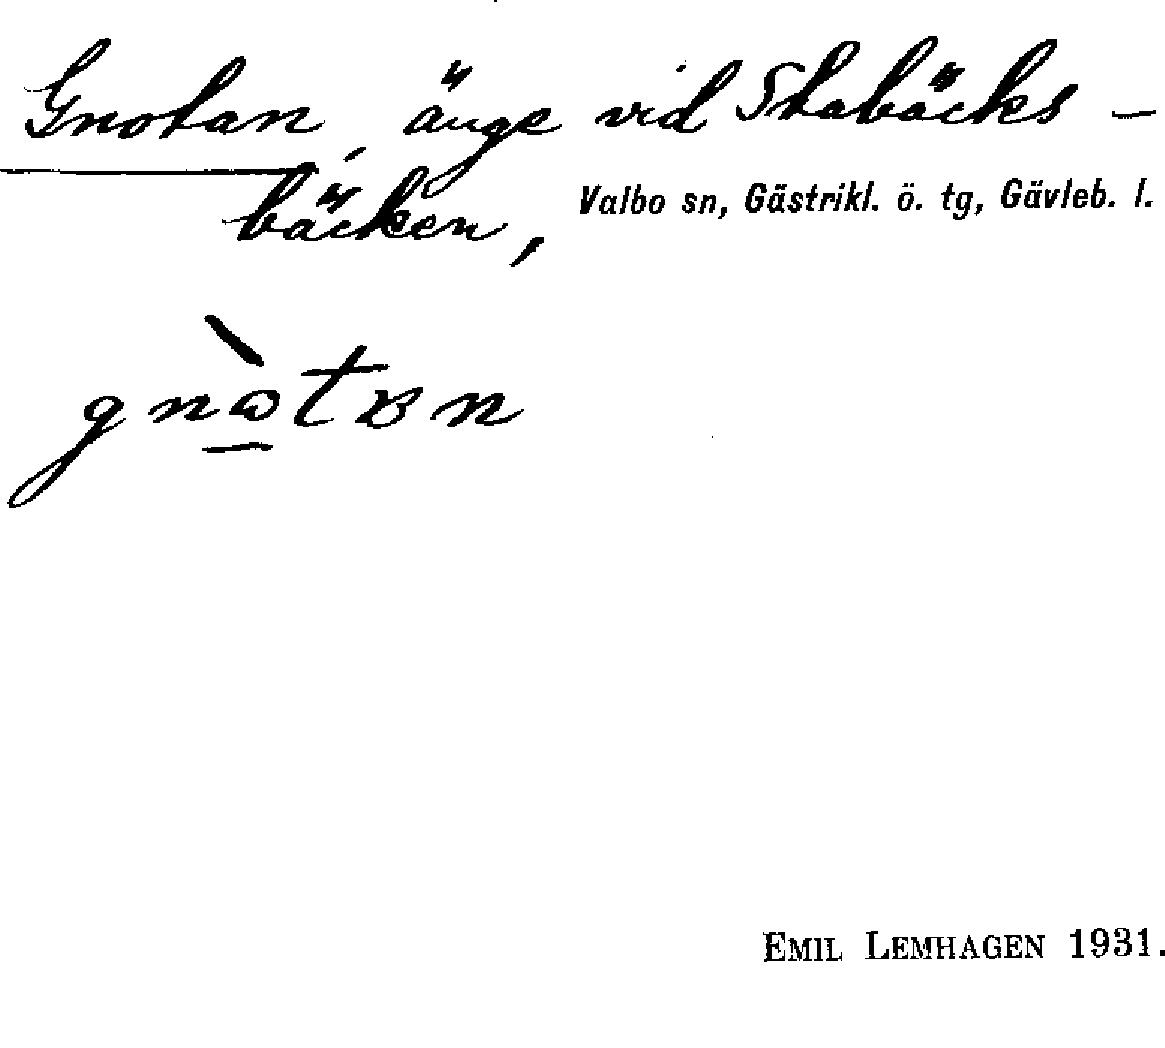 Gnotan, änge vid Skabäcks-
bäcken,
Valbo sn, Gästrikl. ö. tg, Gävleb. l.
gnɷ̠̀tʚn
EMIL LEMHAGEN 1931.